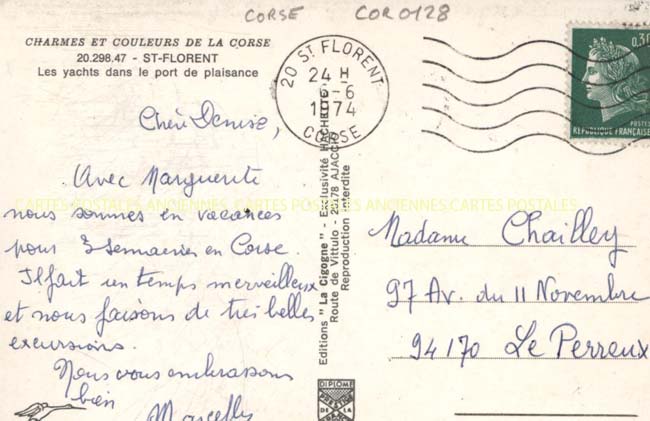 CORSE COR0128
CHARMES ET COULEURS DE LA CORSE
20.298.47 - ST-FLORENT
Les yachts dans le port de plaisance
20 ST FLORENT
24 H
6-6
1974
CORSE
0,30
POSTES
REPUBLIQUE FRANÇAISE
Chère Denise,
Avec Marguerite
nous sommes en vacances
pour 3 semaines en Corse.
Il fait un temps merveilleux
et nous faisons de très belles
excursions.
Nous vous embrassons
bien
Marcelle
Editions "La Cigogne" - Exclusivité HACHETTE
Route de Vittulo - 20178 AJACCIO
Reproduction interdite
Madame Chailley
97 Av. du 11 Novembre
94170 Le Perreux
CARTES POSTALES ANCIENNES CARTES POSTALES
DIPLOME
DE LA